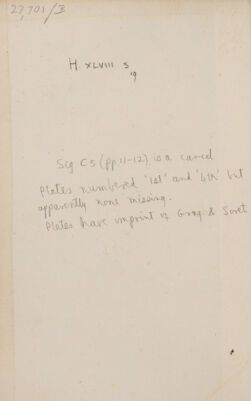 27,701/B
H. XLVIII s
19
Sig C5 (pp 11-12) is a cancel
Plates numbered '1st' and '4th' but
apparently none missing.
Plates have imprint of &